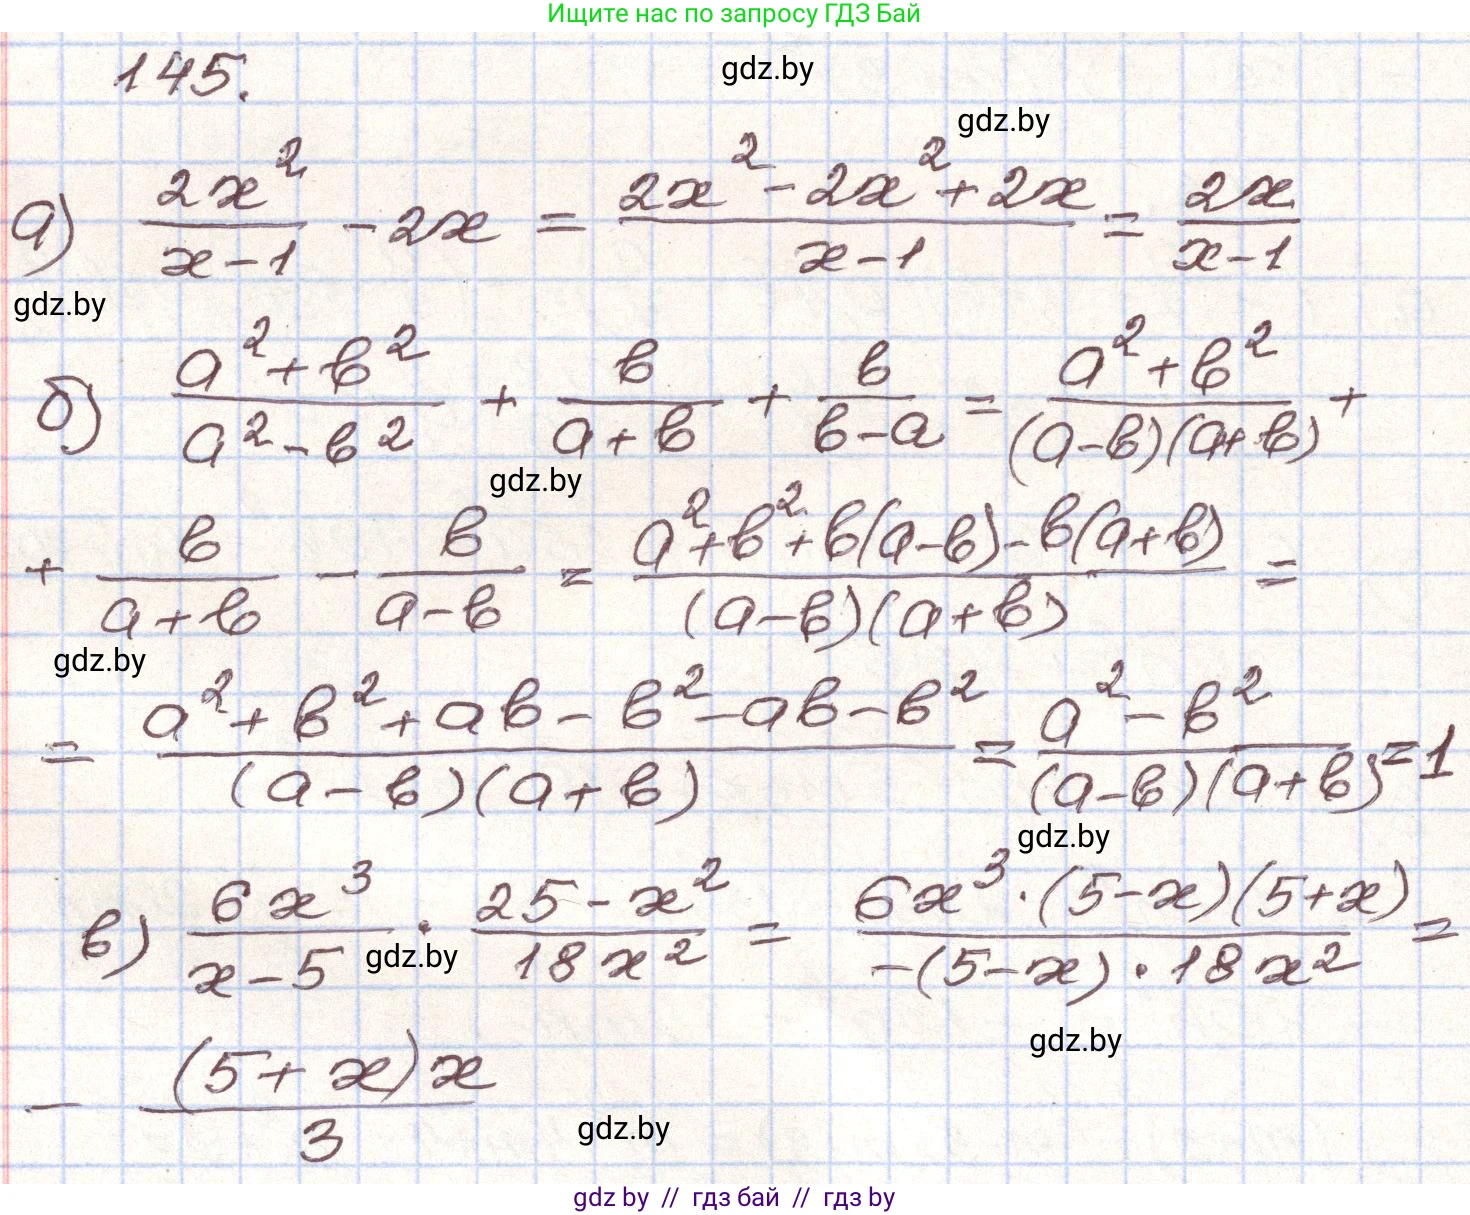 Ищите нас по запросу ГДЗ Бай
145.
gdz.by
gdz.by
а) \frac{2x^2}{x-1} - 2x = \frac{2x^2 - 2x^2 + 2x}{x-1} = \frac{2x}{x-1}
gdz.by
б) \frac{a^2+b^2}{a^2-b^2} + \frac{b}{a+b} + \frac{b}{b-a} = \frac{a^2+b^2}{(a-b)(a+b)} +
gdz.by
+ \frac{b}{a+b} - \frac{b}{a-b} = \frac{a^2+b^2+b(a-b)-b(a+b)}{(a-b)(a+b)} =
gdz.by
= \frac{a^2+b^2+ab-b^2-ab-b^2}{(a-b)(a+b)} = \frac{a^2-b^2}{(a-b)(a+b)} = 1
gdz.by
в) \frac{6x^3}{x-5} · \frac{25-x^2}{18x^2} = \frac{6x^3·(5-x)(5+x)}{-(5-x)·18x^2} =
gdz.by
gdz.by
- \frac{(5+x)x}{3}
gdz.by
gdz by // гдз бай // гдз by